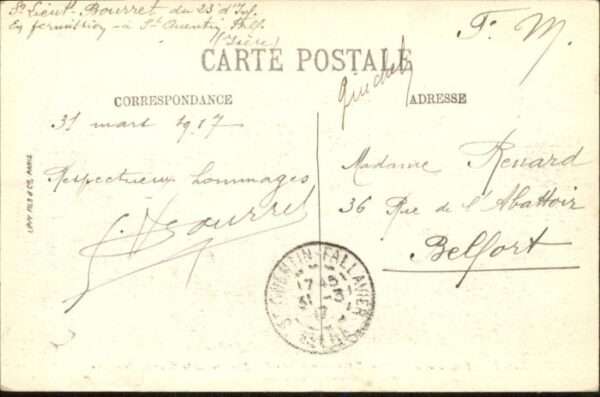 Ss Lieut. Bourret du 23e d'Inf.
En formation à St Quentin Fall.
(Isère)
F. M.
CARTE POSTALE
CORRESPONDANCE
ADRESSE
31 mars 1917
Respectueux hommages
Bourret
Madame Renard
36 Rue de l'Abattoir
Belfort
LEVY FILS & CIE PARIS
ST QUENTIN-FALLAVIER
17
31 - 3
17
ISERE